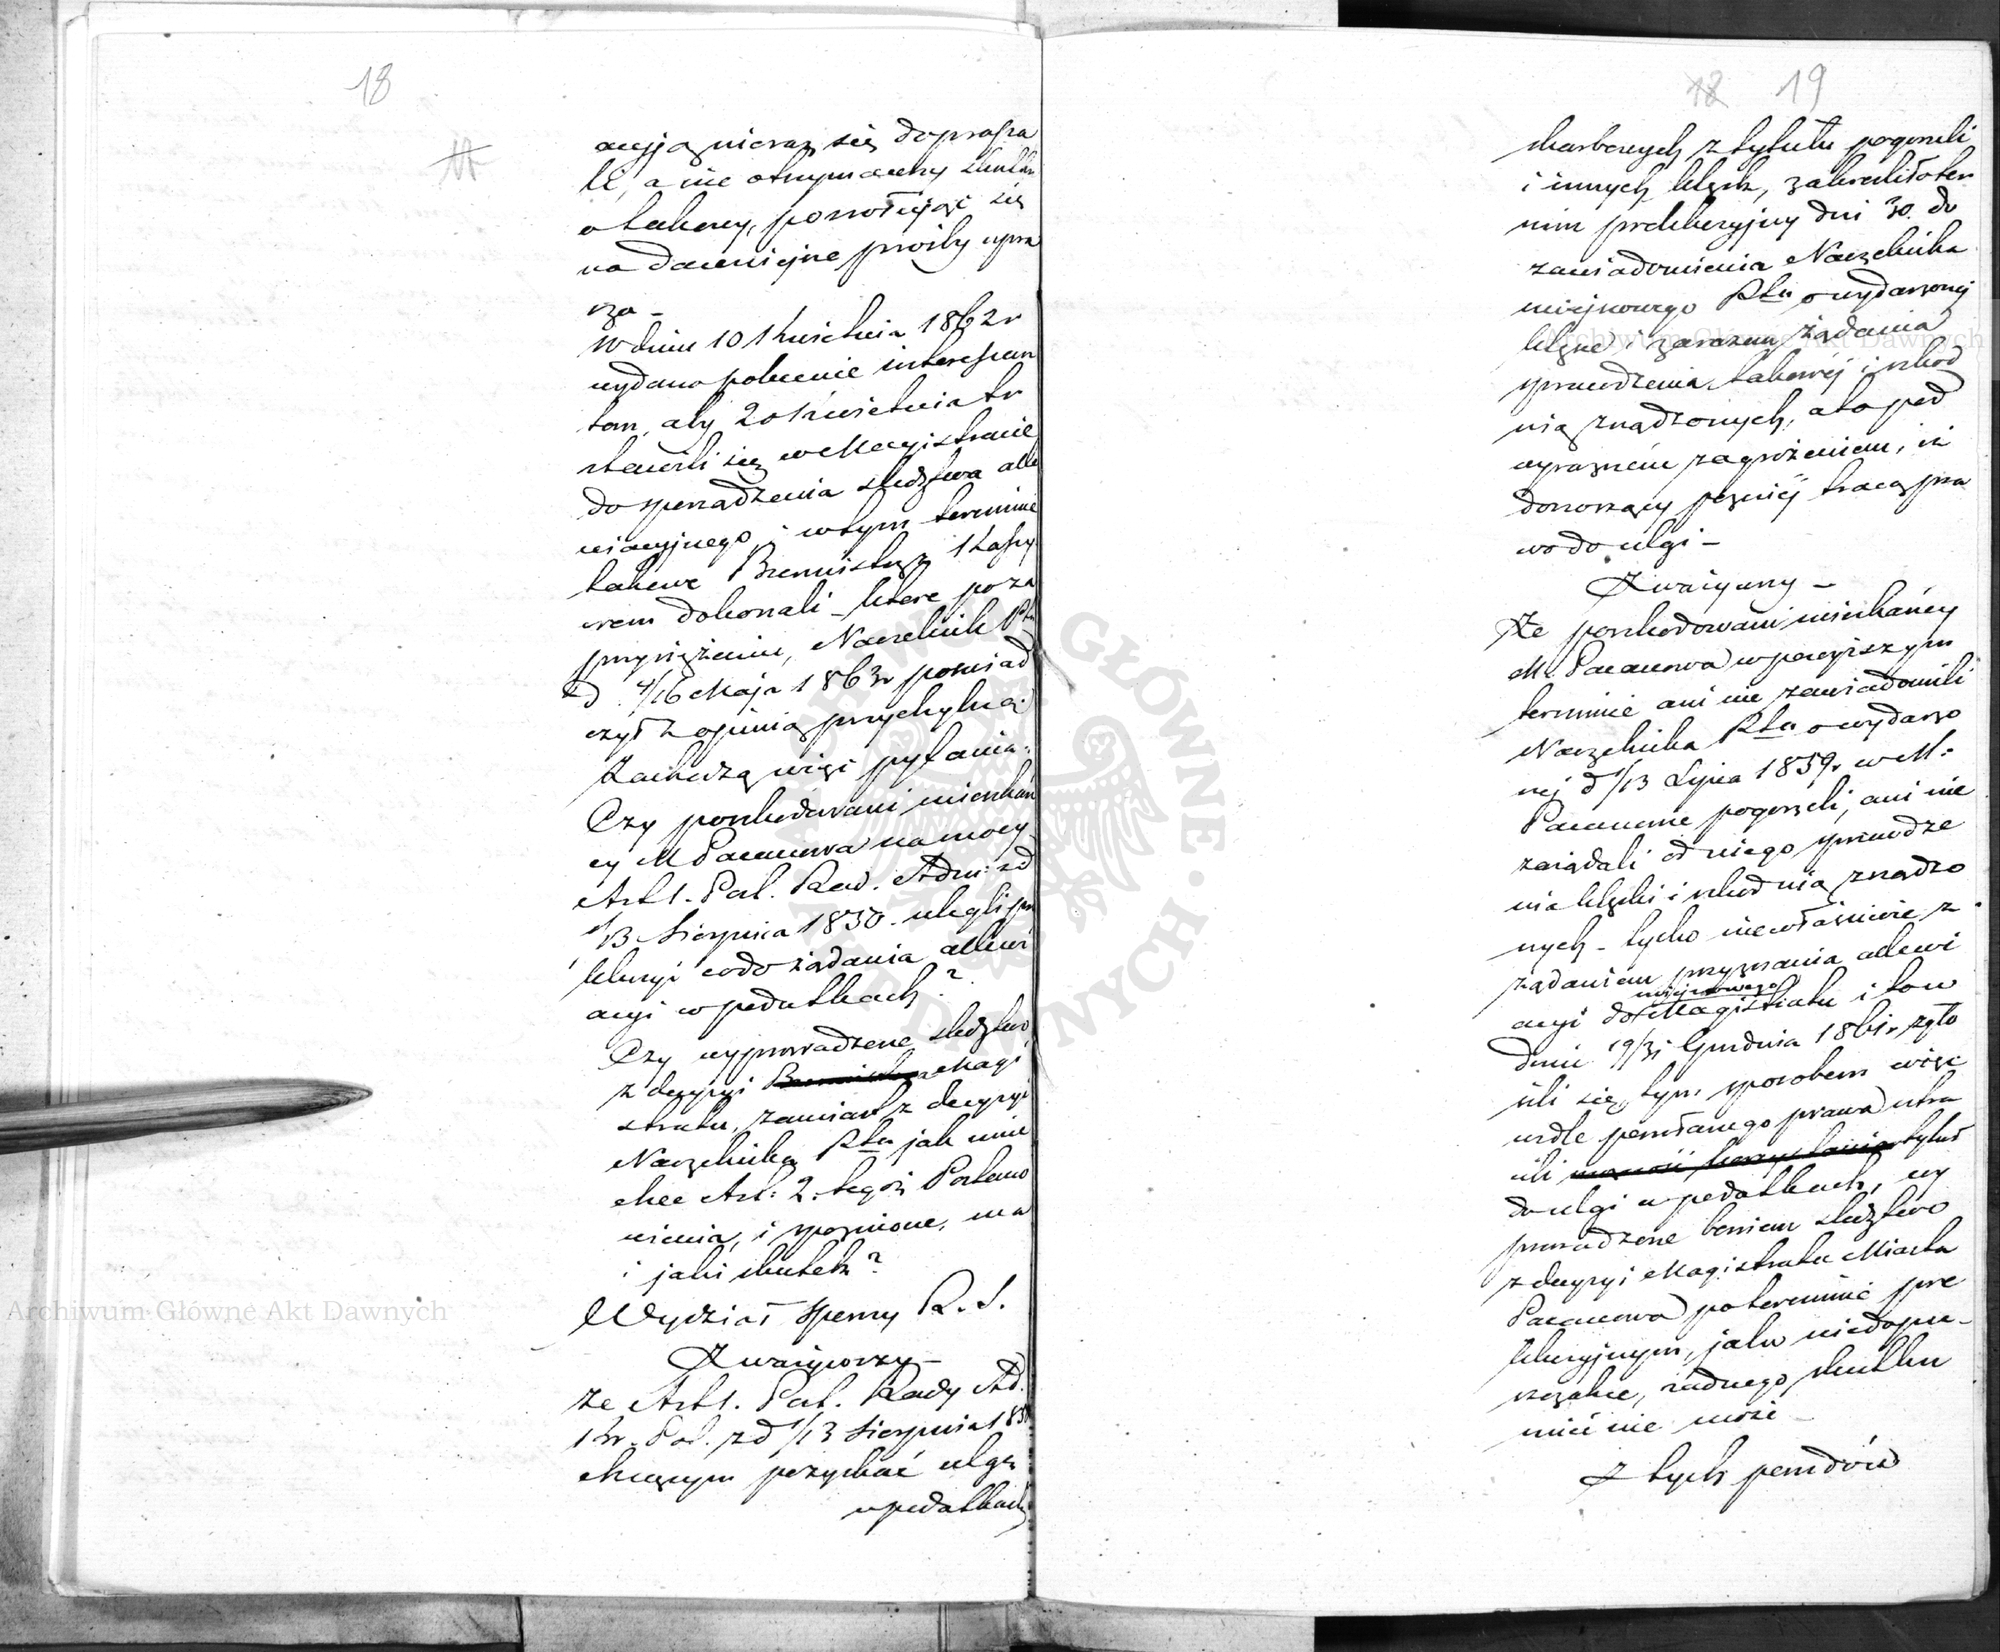 18
acyją nieraz się doprasza
li, a nie otrzymawszy skutku
o takowy, powołując się
na dawniejsze prośby upra
sza –
W dniu 10 Kwietnia 1862 r
wydano polecenie interessan
tom, aby 20 Kwietnia t r
stawili się w Magistracie
do sporządzenia śledztwa alle
wiacyjnego i w tym terminie
takowe Burmistrz z Kassy
erem dokonali – które po za
przysiężeniu, Naczelnik Ptu
d. 4/16 Maja 1863 r poświad
czył z opinią przychylną.
Zachodzą więc pytania:
Czy poszkodowani mieszkań
cy M Pacanowa na mocy
Art 1. Post. Rad. Adm: z d
1/13 Sierpnia 1850. ulegli pre
kluzyi co do żądania allewi
acyi w podatkach?
Czy wyprowadzone śledztwo
z decyzyi Magi
stratu, zamiast z decyzyi
Naczelnika Ptu jak mieć
chce Art: 2. tegoż Postano
wienia, i spóźnione, ma
i jaki skutek?
Wydział Sporny R. S.
Zważywszy –
że Art 1. Post. Rady Ad.
Kr. Pol. z d 1/13 Sierpnia 1850
chcącym pozyskać ulgę
w podatkach
18 19
skarbowych z tytułu pogorzeli
i innych klęsk, zakreślił ter
min prekluzyjny dni 30. do
zawiadomienia Naczelnika
miejscowego Ptu o wydarzonej
klęsce i zarazem żądania
sprawdzenia takowéj i szkód
nią zrządzonych, a to pod
wyraźném zagrożeniem, iż
donoszący później tracą pra
wo do ulgi –
Zważywszy –
Że poszkodowani mieszkańcy
M. Pacanowa w powyższym
terminie ani nie zawiadomili
Naczelnika Ptu o wydarzo
nej d 1/13 Lipca 1859 r w M:
Pacanowie pogorzeli, ani nie
zażądali od niego sprawdze
nia klęski i szkód nią zrządzo
nych – tylko niewłaściwie z
żądaniem przyznania allewi
miejscowego
acyi do Magistratu i to w
dniu 19/31 Grudnia 1861 r zgło
sili się, tym sposobem więc
wedle powołanego prawa utra
cili tytuł
do ulgi w podatkach, wy
prowadzone bowiem śledztwo
z decyzyi Magistratu Miasta
Pacanowa po terminie pre
kluzyjnym, jako niedopu-
szczalne, żadnego skutku
mieć nie może –
Z tych powodów
Archiwum Główne Akt Dawnych
Archiwum Główne Akt Dawnych
ARCHIWUM GŁÓWNE AKT DAWNYCH